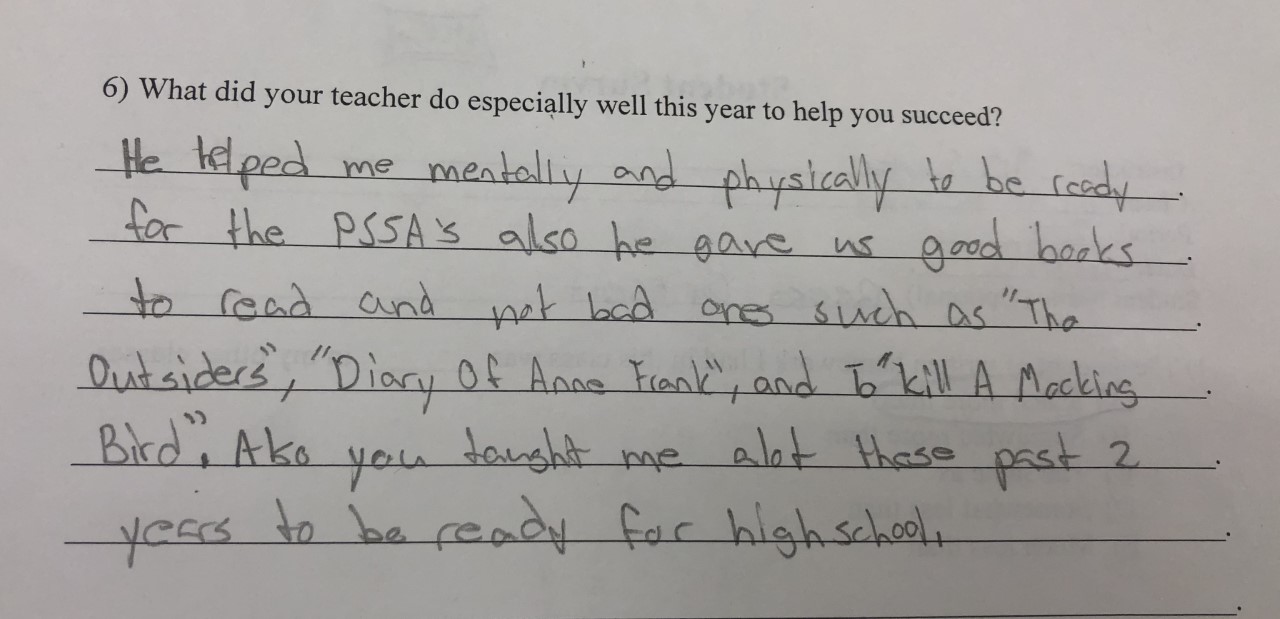 6) What did your teacher do especially well this year to help you succeed?
He helped me mentally and physically to be ready
for the PSSA's also he gave us good books
to read and not bad ones such as "The
Outsiders", "Diary Of Anne Frank", and To "kill A Mocking
Bird". Also you taught me alot these past 2
years to be ready for highschool.